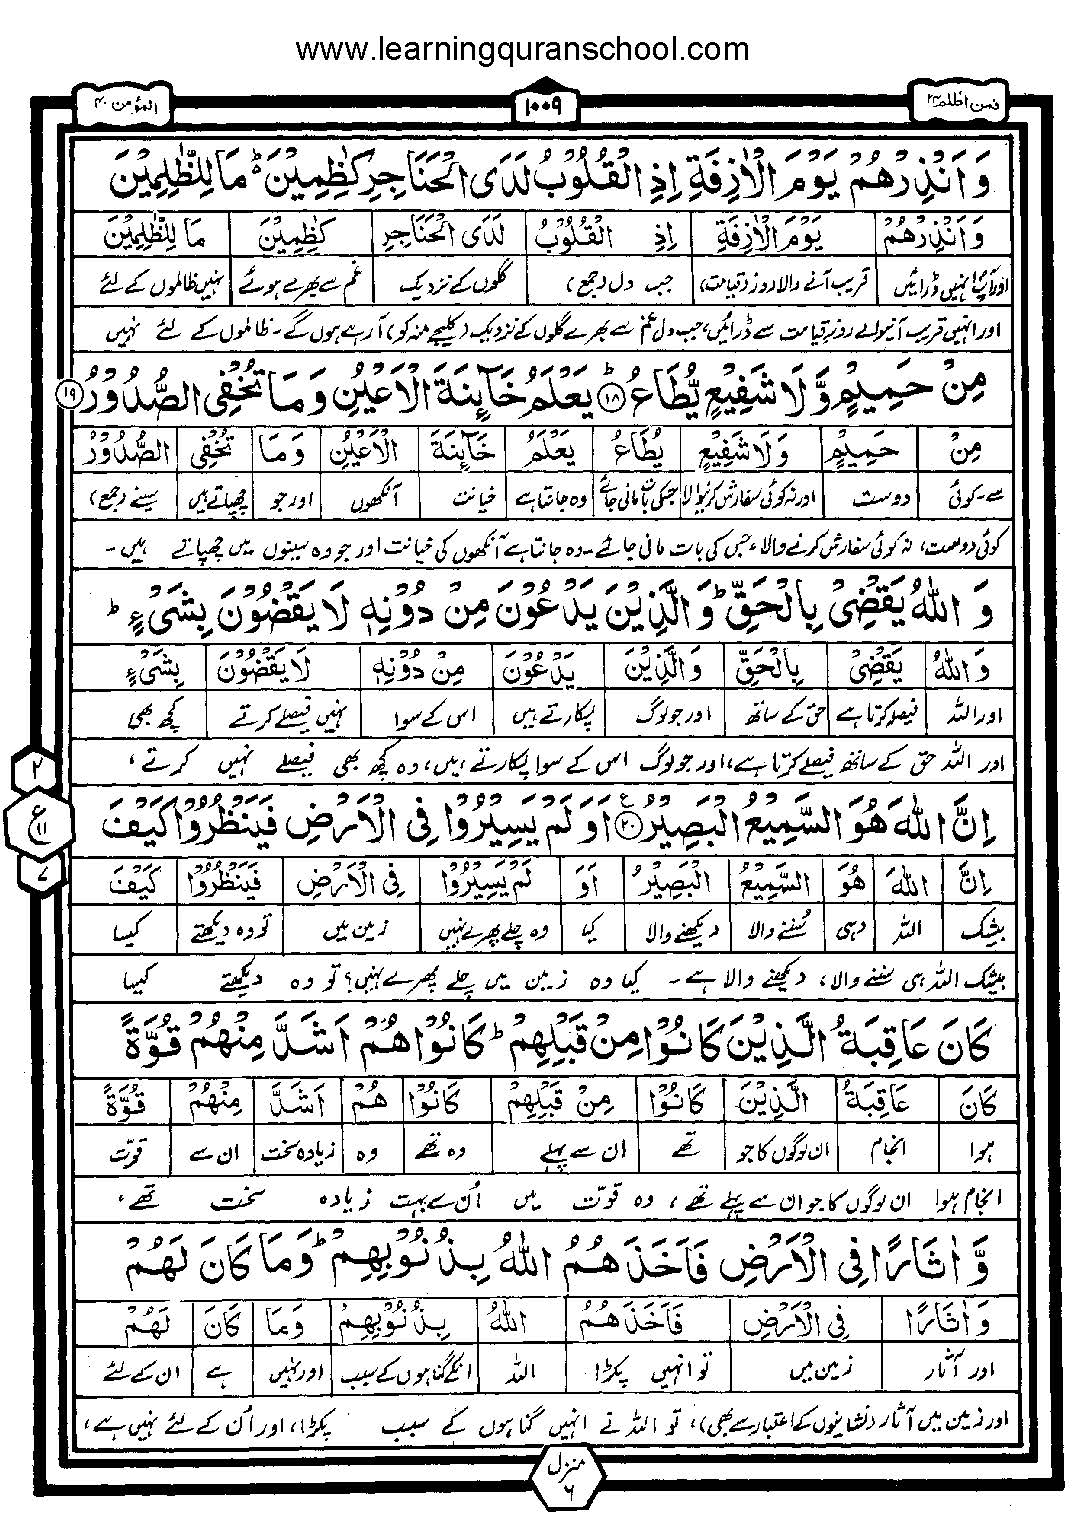 www.learningquranschool.com
المؤمن ۴۰
۱۰۰۹
فمن اظلم ۲۴
وَاَنْذِرْهُمْ يَوْمَ الْاٰزِفَةِ اِذِ الْقُلُوْبُ لَدَى الْحَنَاجِرِ كٰظِمِيْنَ ؕ مَا لِلظّٰلِمِيْنَ
وَاَنْذِرْهُمْ يَوْمَ الْاٰزِفَةِ اِذِ الْقُلُوْبُ لَدَى الْحَنَاجِرِ كٰظِمِيْنَ مَا لِلظّٰلِمِيْنَ
اور آپ انہیں ڈرائیں قریب آنے والا روز (قیامت) جب دل (جمع) گلوں کے نزدیک غم سے بھرے ہوئے نہیں ظالموں کے لئے
اور انہیں قریب آنیوالے روزِ قیامت سے ڈرائیں، جب دل غم سے بھرے گلوں کے نزدیک (کلیجے منہ کو) آ رہے ہوں گے۔ ظالموں کے لئے نہیں
مِنْ حَمِيْمٍ وَّلَا شَفِيْعٍ يُّطَاعُ ؕ ۱۸ يَعْلَمُ خَآئِنَةَ الْاَعْيُنِ وَمَا تُخْفِى الصُّدُوْرُ ۱۹
مِنْ حَمِيْمٍ وَلَا شَفِيْعٍ يُطَاعُ يَعْلَمُ خَآئِنَةَ الْاَعْيُنِ وَمَا تُخْفِى الصُّدُوْرُ
سے۔کوئی دوست اور نہ کوئی سفارش کرنیوالا جسکی بات مانی جائے وہ جانتا ہے خیانت آنکھوں اور جو چھپاتے ہیں سینے (جمع)
کوئی دوست، نہ کوئی سفارش کرنے والا، جس کی بات مانی جائے۔ وہ جانتا ہے آنکھوں کی خیانت اور جو وہ سینوں میں چھپاتے ہیں۔
وَاللّٰهُ يَقْضِىْ بِالْحَقِّ ؕ وَالَّذِيْنَ يَدْعُوْنَ مِنْ دُوْنِهٖ لَا يَقْضُوْنَ بِشَىْءٍ ؕ
وَاللّٰهُ يَقْضِىْ بِالْحَقِّ وَالَّذِيْنَ يَدْعُوْنَ مِنْ دُوْنِهٖ لَا يَقْضُوْنَ بِشَىْءٍ
اور اللہ فیصلہ کرتا ہے حق کے ساتھ اور جو لوگ پکارتے ہیں اس کے سوا نہیں فیصلے کرتے کچھ بھی
اور اللہ حق کے ساتھ فیصلے کرتا ہے، اور جو لوگ اس کے سوا پکارتے ہیں، وہ کچھ بھی فیصلے نہیں کرتے،
۲
ع
۱۱
۷
اِنَّ اللّٰهَ هُوَ السَّمِيْعُ الْبَصِيْرُ ۲۰ ع اَوَلَمْ يَسِيْرُوْا فِى الْاَرْضِ فَيَنْظُرُوْا كَيْفَ
اِنَّ اللّٰهَ هُوَ السَّمِيْعُ الْبَصِيْرُ اَوَ لَمْ يَسِيْرُوْا فِى الْاَرْضِ فَيَنْظُرُوْا كَيْفَ
بیشک اللہ وہی سننے والا دیکھنے والا کیا وہ چلے پھرے نہیں زمین میں تو وہ دیکھتے کیسا
بیشک اللہ ہی سننے والا، دیکھنے والا ہے۔ کیا وہ زمین میں چلے پھرے نہیں؟ تو وہ دیکھتے کیسا
كَانَ عَاقِبَةُ الَّذِيْنَ كَانُوْا مِنْ قَبْلِهِمْ ؕ كَانُوْا هُمْ اَشَدَّ مِنْهُمْ قُوَّةً
كَانَ عَاقِبَةُ الَّذِيْنَ كَانُوْا مِنْ قَبْلِهِمْ كَانُوْا هُمْ اَشَدَّ مِنْهُمْ قُوَّةً
ہوا انجام ان لوگوں کا جو تھے ان سے پہلے وہ تھے وہ زیادہ سخت ان سے قوت
انجام ہوا ان لوگوں کا جو ان سے پہلے تھے، وہ قوت میں اُن سے بہت زیادہ سخت تھے،
وَّاٰثَارًا فِى الْاَرْضِ فَاَخَذَهُمُ اللّٰهُ بِذُنُوْبِهِمْ ؕ وَمَا كَانَ لَهُمْ
وَاٰثَارًا فِى الْاَرْضِ فَاَخَذَهُمُ اللّٰهُ بِذُنُوْبِهِمْ وَمَا كَانَ لَهُمْ
اور آثار زمین میں تو انہیں پکڑا اللہ انکے گناہوں کے سبب اور نہیں ہے ان کے لئے
اور زمین میں آثار (نشانیوں کے اعتبار سے بھی)، تو اللہ نے انہیں گناہوں کے سبب پکڑا، اور اُن کے لئے نہیں ہے،
منزل
۶